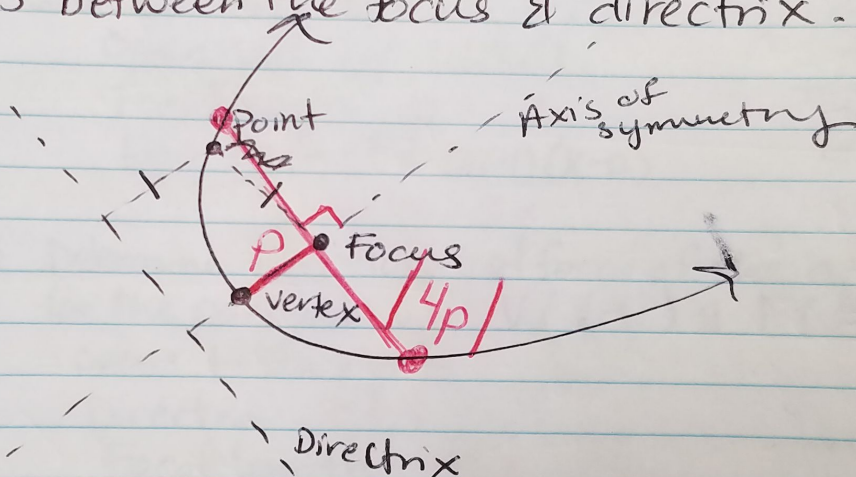 between the focus & directrix.
Axis of
symmetry
Point
P
Focus
vertex
|4p|
Directrix